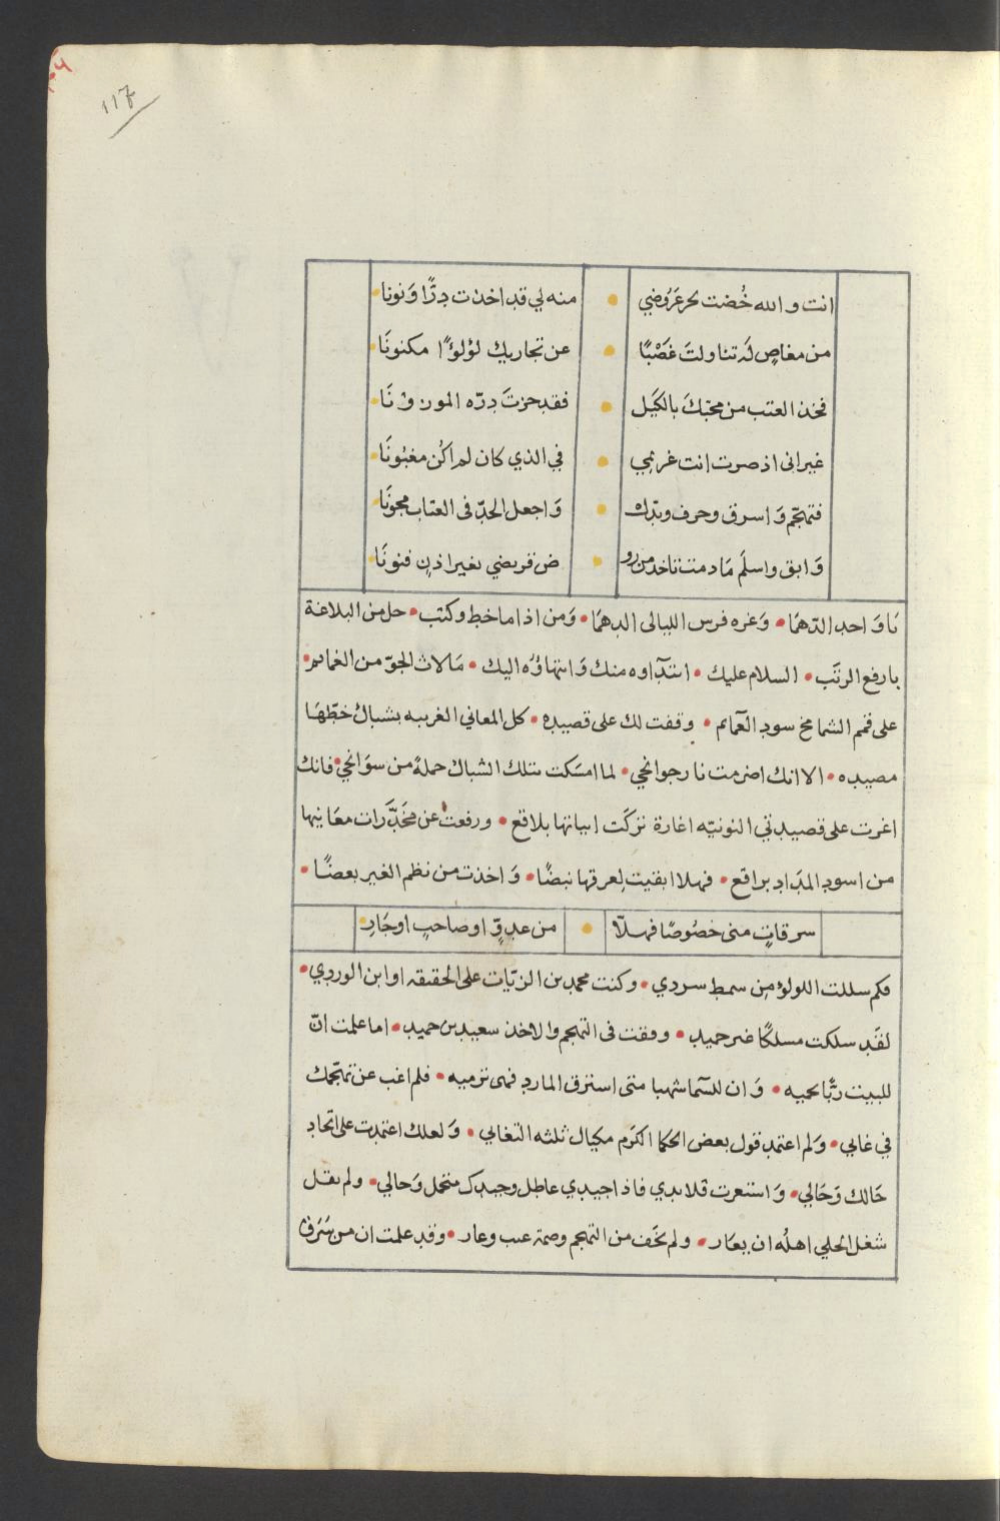 117
انت والله خُضت بحر عَرُوضي • منه لي قد اخذت درًّا وَنونا •
من مغاصٍ لَه تناولتَ غَصْبًا • عن تجاريك لؤلؤًا مكنونَا •
فخذ العتب من محبّكَ بالكَيل • فقد حزتَ درّه الموزونَا •
غير اني اذ صرت انت غريمي • في الذي كان لم اكُن مغبُونَا •
فتهجّم وَاسرق وحرف وبدّل • وَاجعل الجدّ في العتاب مجونَا •
وَابق واسلَم مَا دمت تاخذ من رو • ض قريضي بغير اذنٍ فنونَا •
يَا وَاحد الدّهمَا • وَغره فرس الليالي الدهمَا • وَمن اذا ما خط وكتب • حل من البلاغة
بارفع الرتَب • السلام عليك • ابتدآوه منك وَانتهاؤُه اليك • مَا لاث الجوّ من الغمايم •
على قمم الشامخ سود العمَايم • وقفت لك على قصيده • كل المعاني الغريبه بشباك خطّهَا
مصيده • الا انك اضرمت نار جوانحي • لما امسَكت بتلك الشباك جملةً من سوَانحي • فانك
اغرت على قصيدتي النونيّه اغارة تركَت ابياتها بلاقع • ورفعت عن مخَدَّرات معَانيها
من اسود المدَاد براقع • فهلا ابقيت لعرقها نبضًا • وَاخذت من نظم الغير بعضًا •
سرقاتٍ مني خصُوصًا فهلّا • من عدوٍّ او صاحبٍ او جَارِ •
فكم سللت اللولؤ من سمط سردي • وكنت محمد بن الزيّات على الحقيقه او ابن الوردي •
لقَد سلكت مسلكًا غير حميد • وفقت في التهجم والاخذ سعيد بن حميد • اما علمت انّ
للبيت ربًّا يحميه • وَان للسّما شهبا متى استرق المارد فهى ترميه • فلم اغب عن تهجّمك
في غابي • وَلم اعتمد قول بعض الحكما الكرَم مكيال ثلثه التغابي • وَلعلك اعتمدت على اتحاد
حَالك وَحَالي • وَاستعرت قلايدي فاذا جيدي عاطل وجيدك متحمل وَحالي • ولم يقل
شغل الحلي اهلُه ان يعَار • ولم تخَف من التهجم وصمة عيب وعار • وقد علمت ان من سَرَق